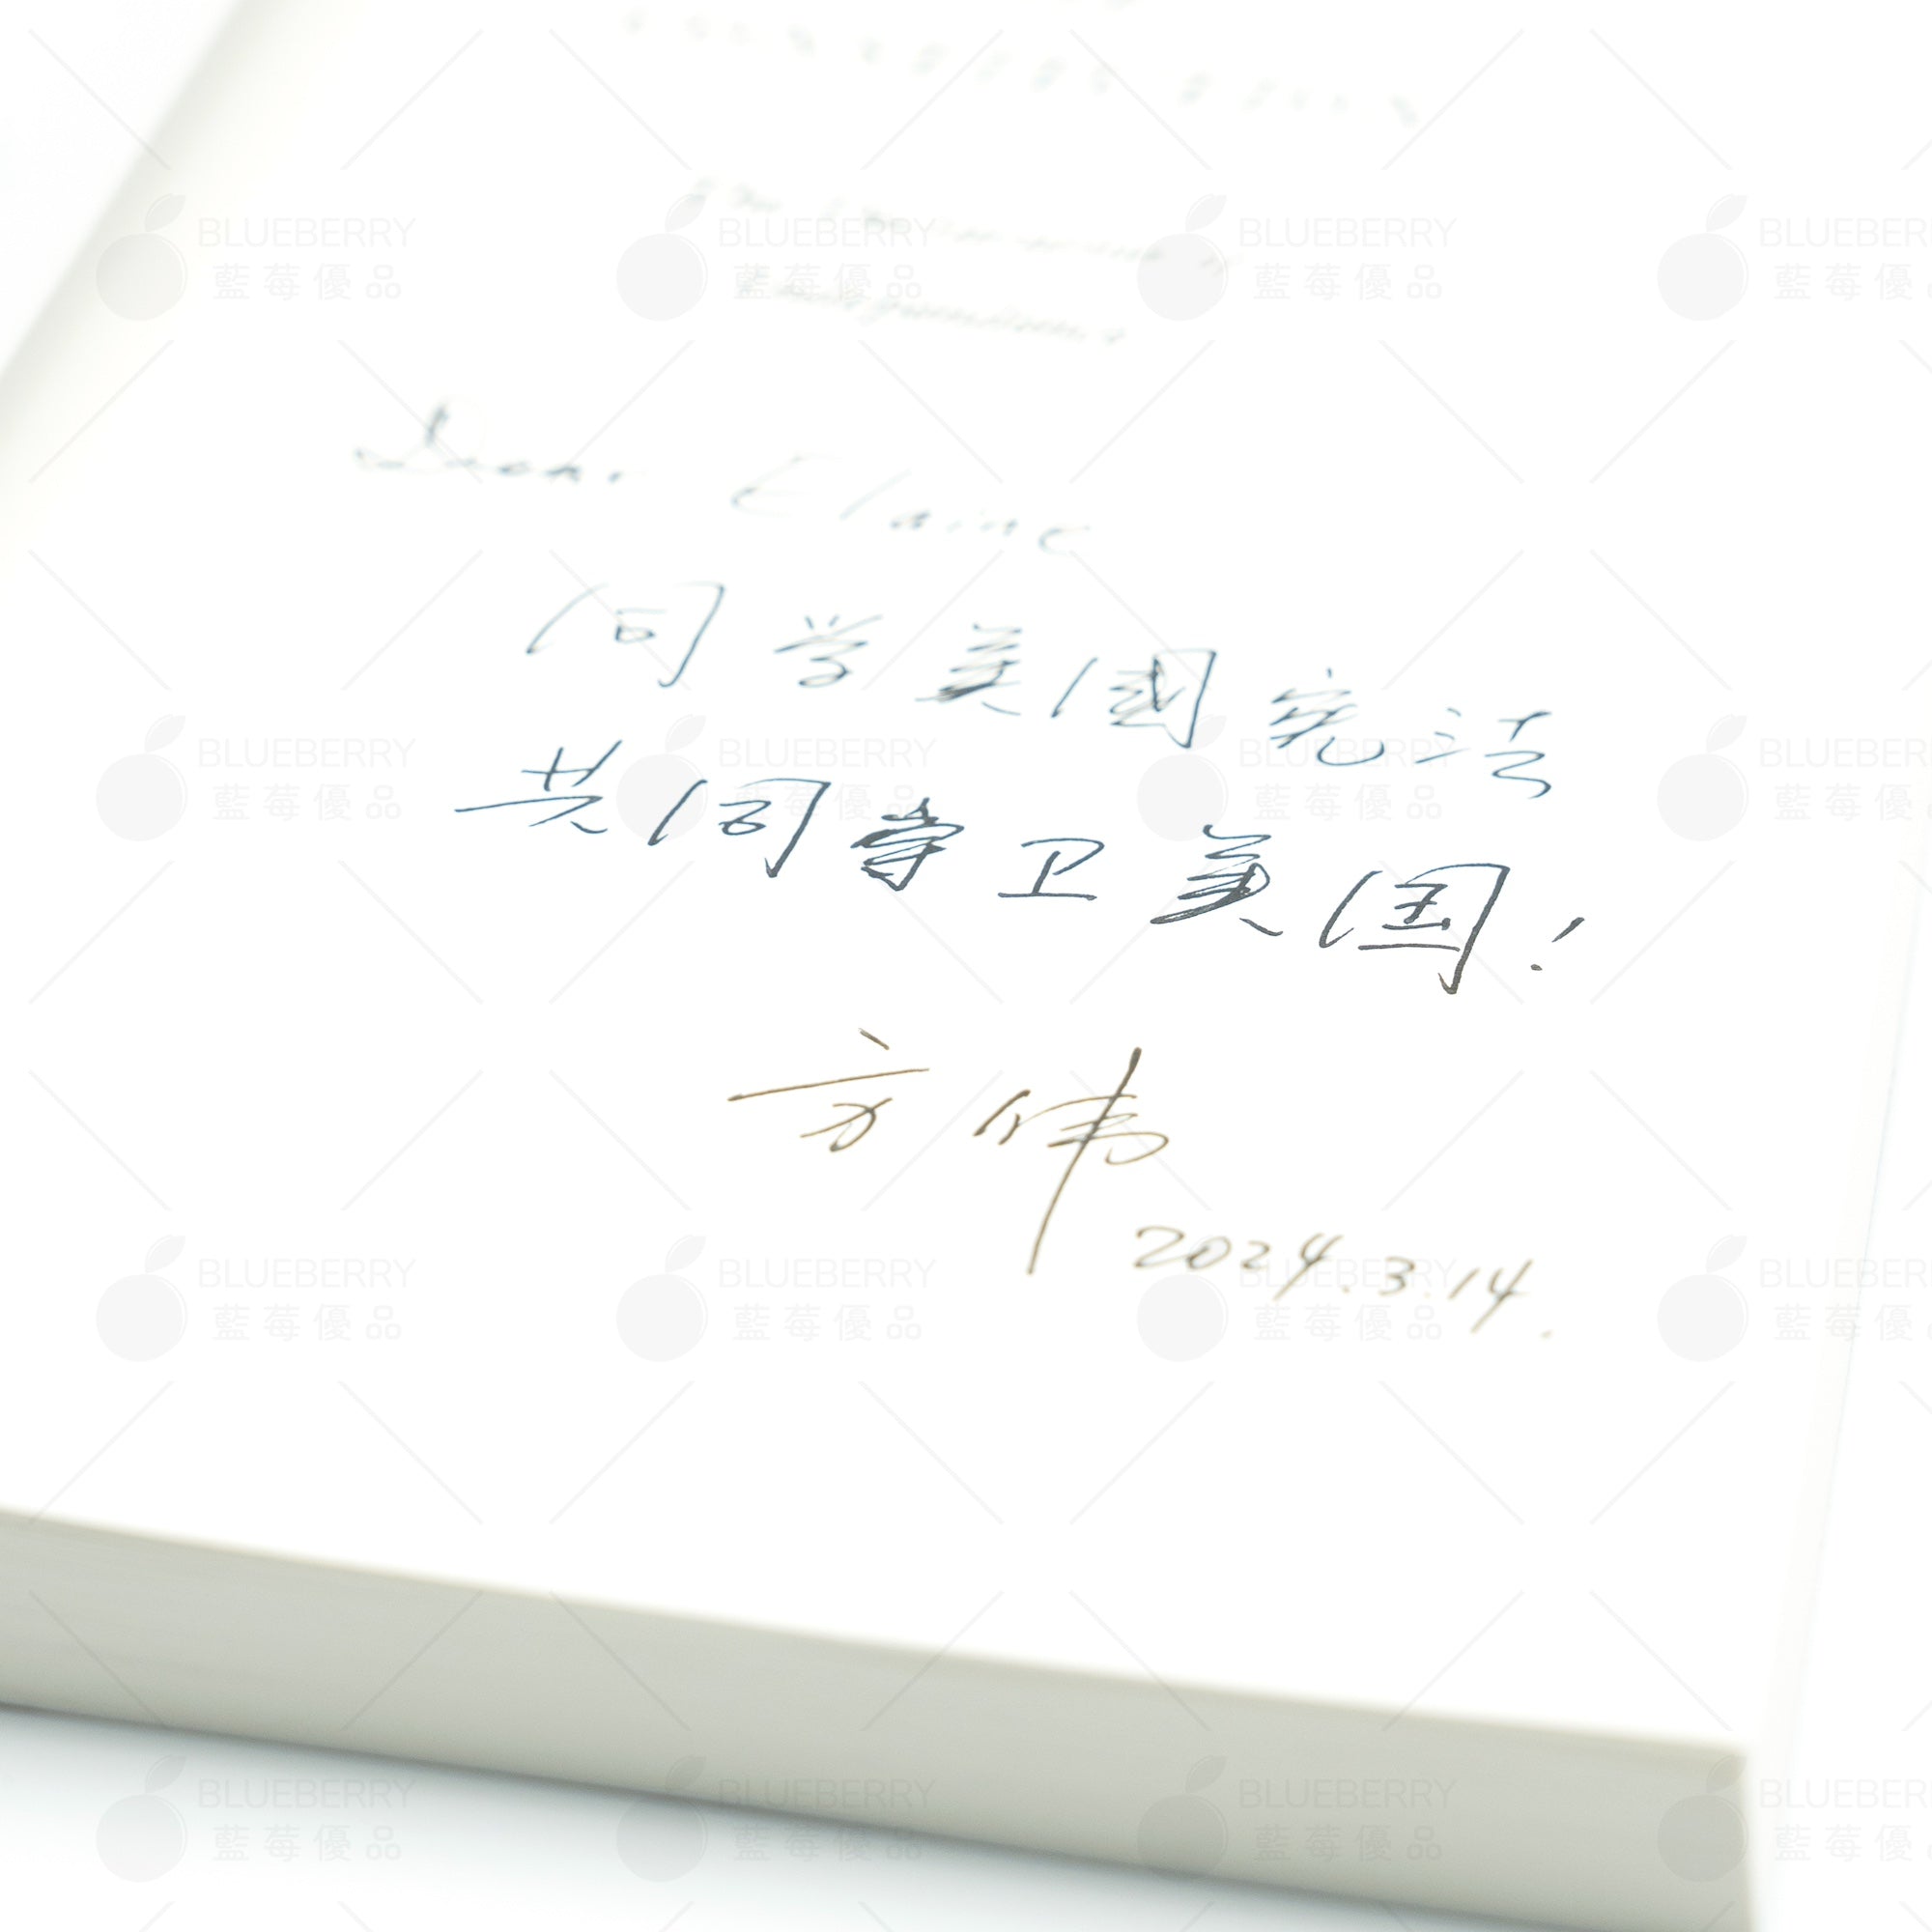 Dear Elaine
同学美國宪法
共同守卫美国！
方伟
2024.3.14.
BLUEBERRY
藍莓優品